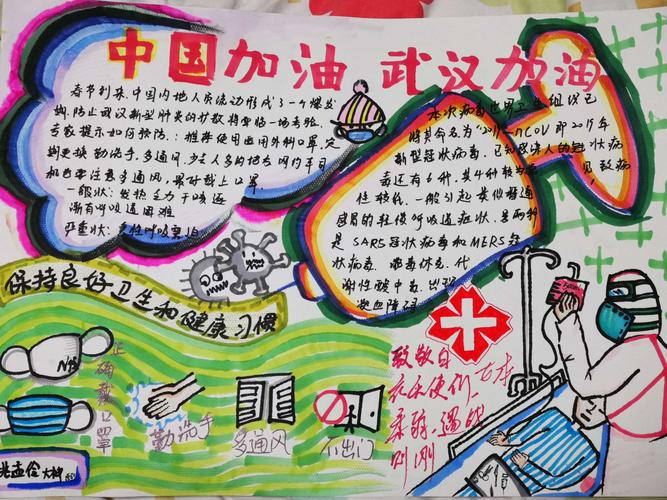 中国加油 武汉加油
春节到来,中国内地人员流动形成了一个爆发
期,防止武汉新型肺炎的扩散将面临一场考验,
专家提示如何预防:推荐使用医用外科口罩,定
期更换,勤洗手,多通风,少去人多的地方,网约车司
机也要注意多通风,最好戴上口罩
一般症状:发热、乏力、干咳、逐
渐有呼吸道困难
严重状:重性呼吸窘迫
本次病毒世界卫生组织已
将其命名为"2019-nCOV即2019年
新型冠状病毒,已知感染人的冠状病
毒还有6种,其4种较为常见,致病
性较低,一般引起类似普通
感冒的轻微呼吸道症状,另两种
是SARS冠状病毒和MERS冠
状病毒.
性酸中毒,出现
凝血障碍
保持良好卫生和健康习惯
N95
正确戴口罩
勤洗手
多通风
不出门
致敬白
衣天使们.
柔弱,遇战
则刚